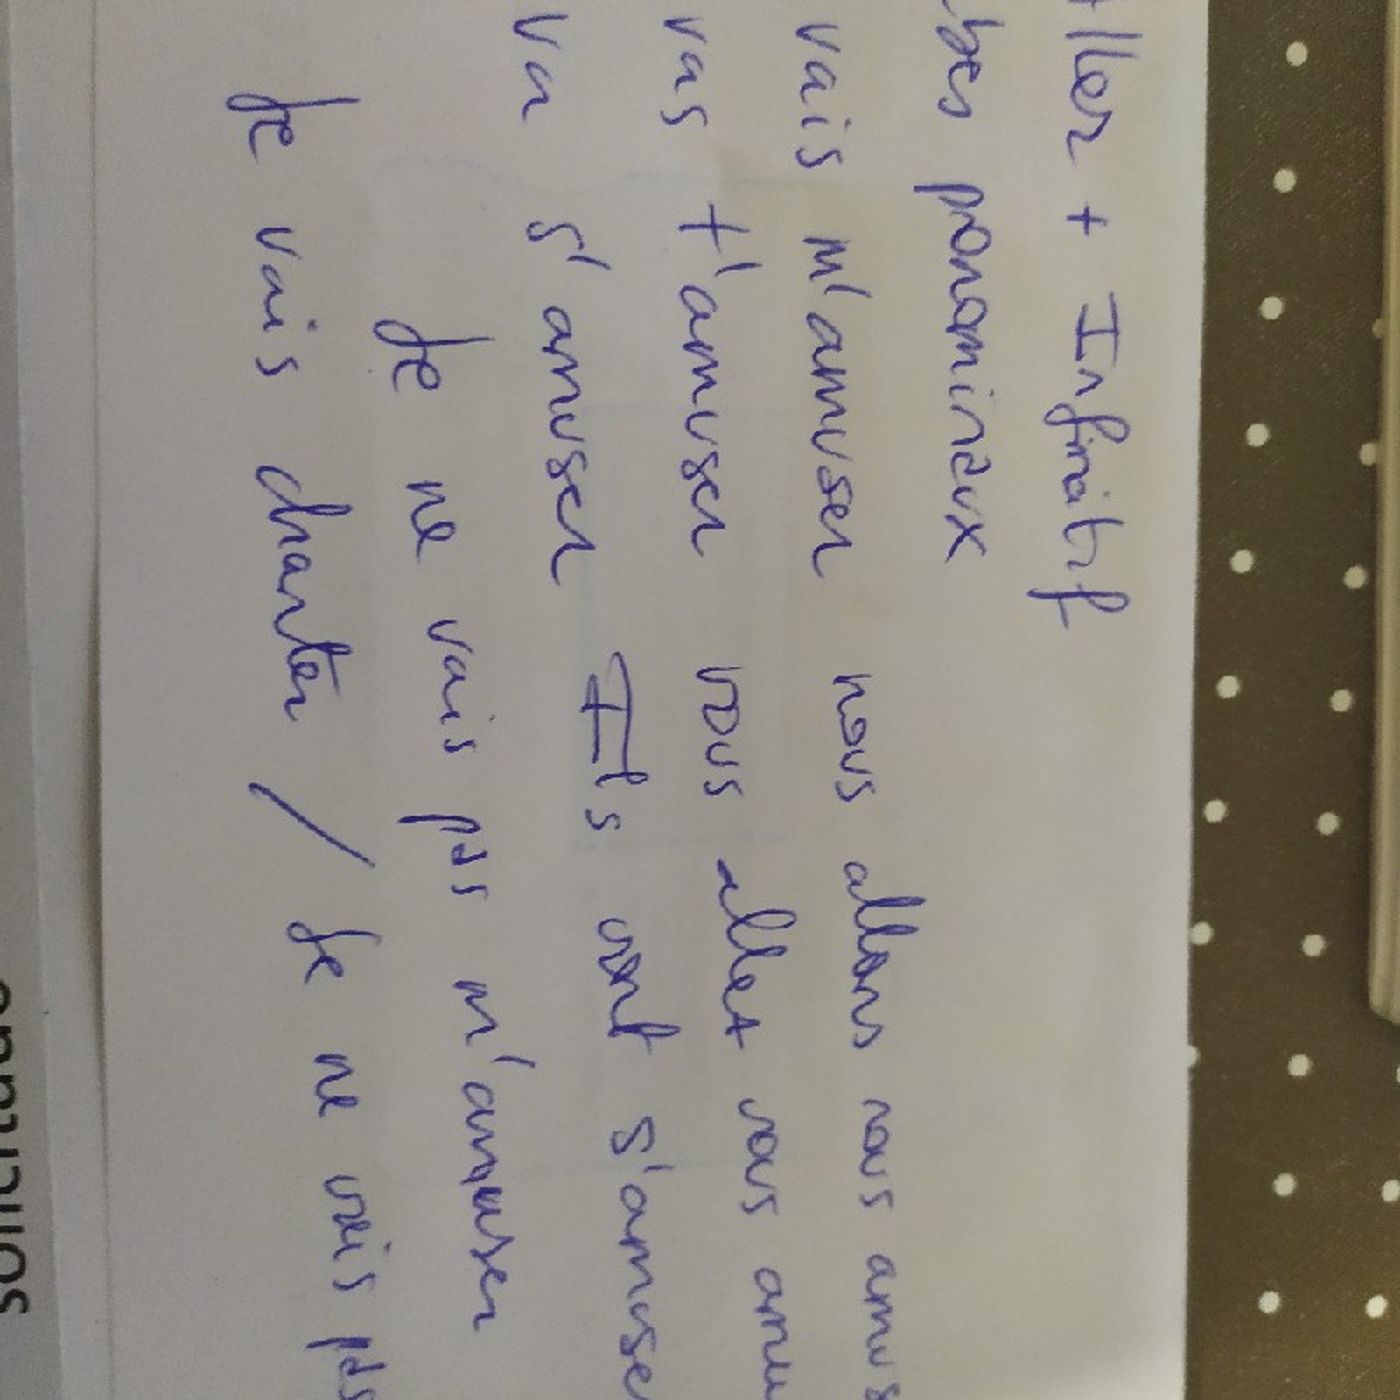 Aller + Infinitif
bes ponominaux
vais m'amuser nous allons nous amus
vas t'amuser vous allez vous amu
va s'amuser Ils vont s'amuse
Je ne vais pas m'amuser
Je vais chanter / Je ne vais pas
solicitado